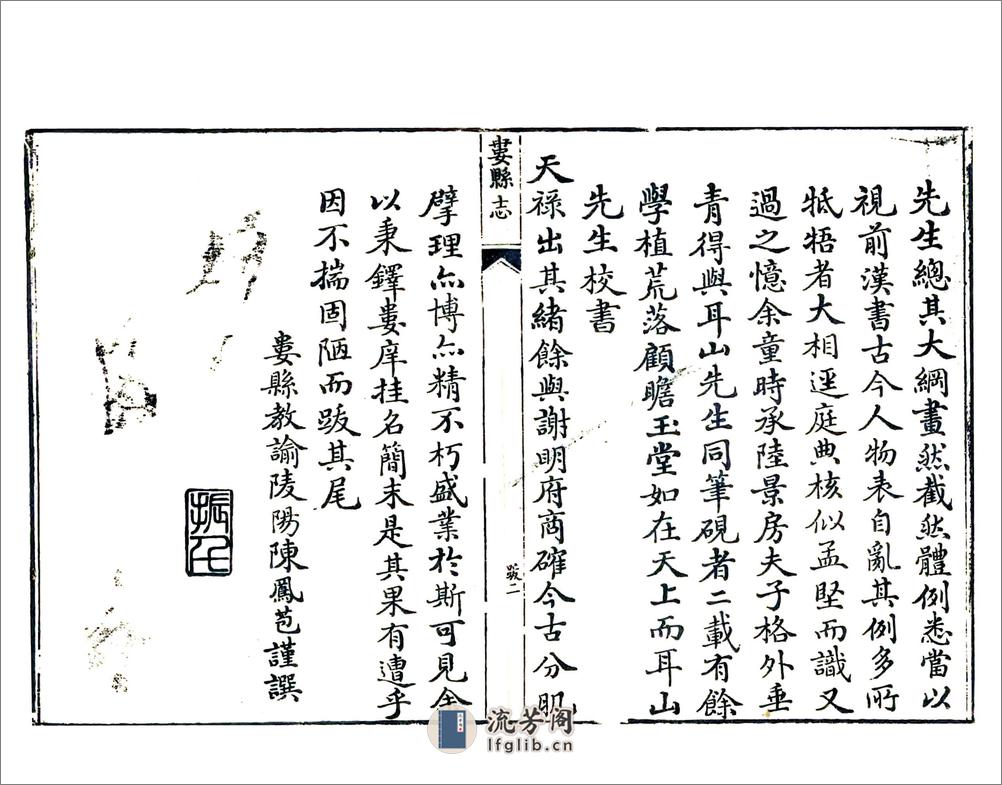 先生總其大綱畫然截然體例悉當以
視前漢書古今人物表自亂其例多所
牴牾者大相逕庭典核似孟堅而識又
過之憶余童時承陸景房夫子格外垂
青得與耳山先生同筆硯者二載有餘
學植荒落顧瞻玉堂如在天上而耳山
先生校書
天祿出其緒餘與謝明府商確今古分肌
婁縣志
跋二
擘理亦博亦精不朽盛業於斯可見余
以秉鐸婁庠挂名簡末是其果有遭乎
因不揣固陋而跋其尾
婁縣教諭陵陽陳鳳苞謹譔
振氏
流芳阁
lfglib.cn